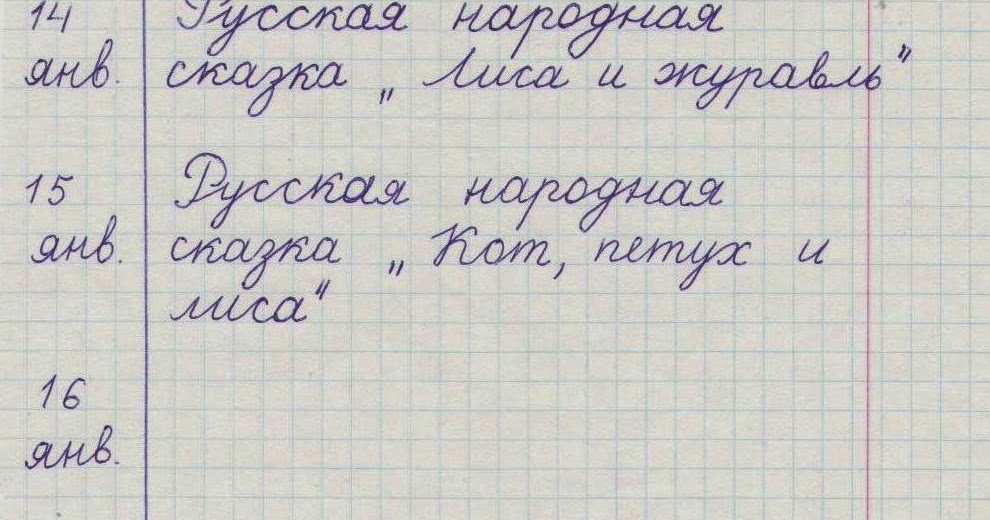 14 Русская народная
янв. сказка „Лиса и журавль"
15 Русская народная
янв. сказка „Кот, петух и
лиса"
16
янв.